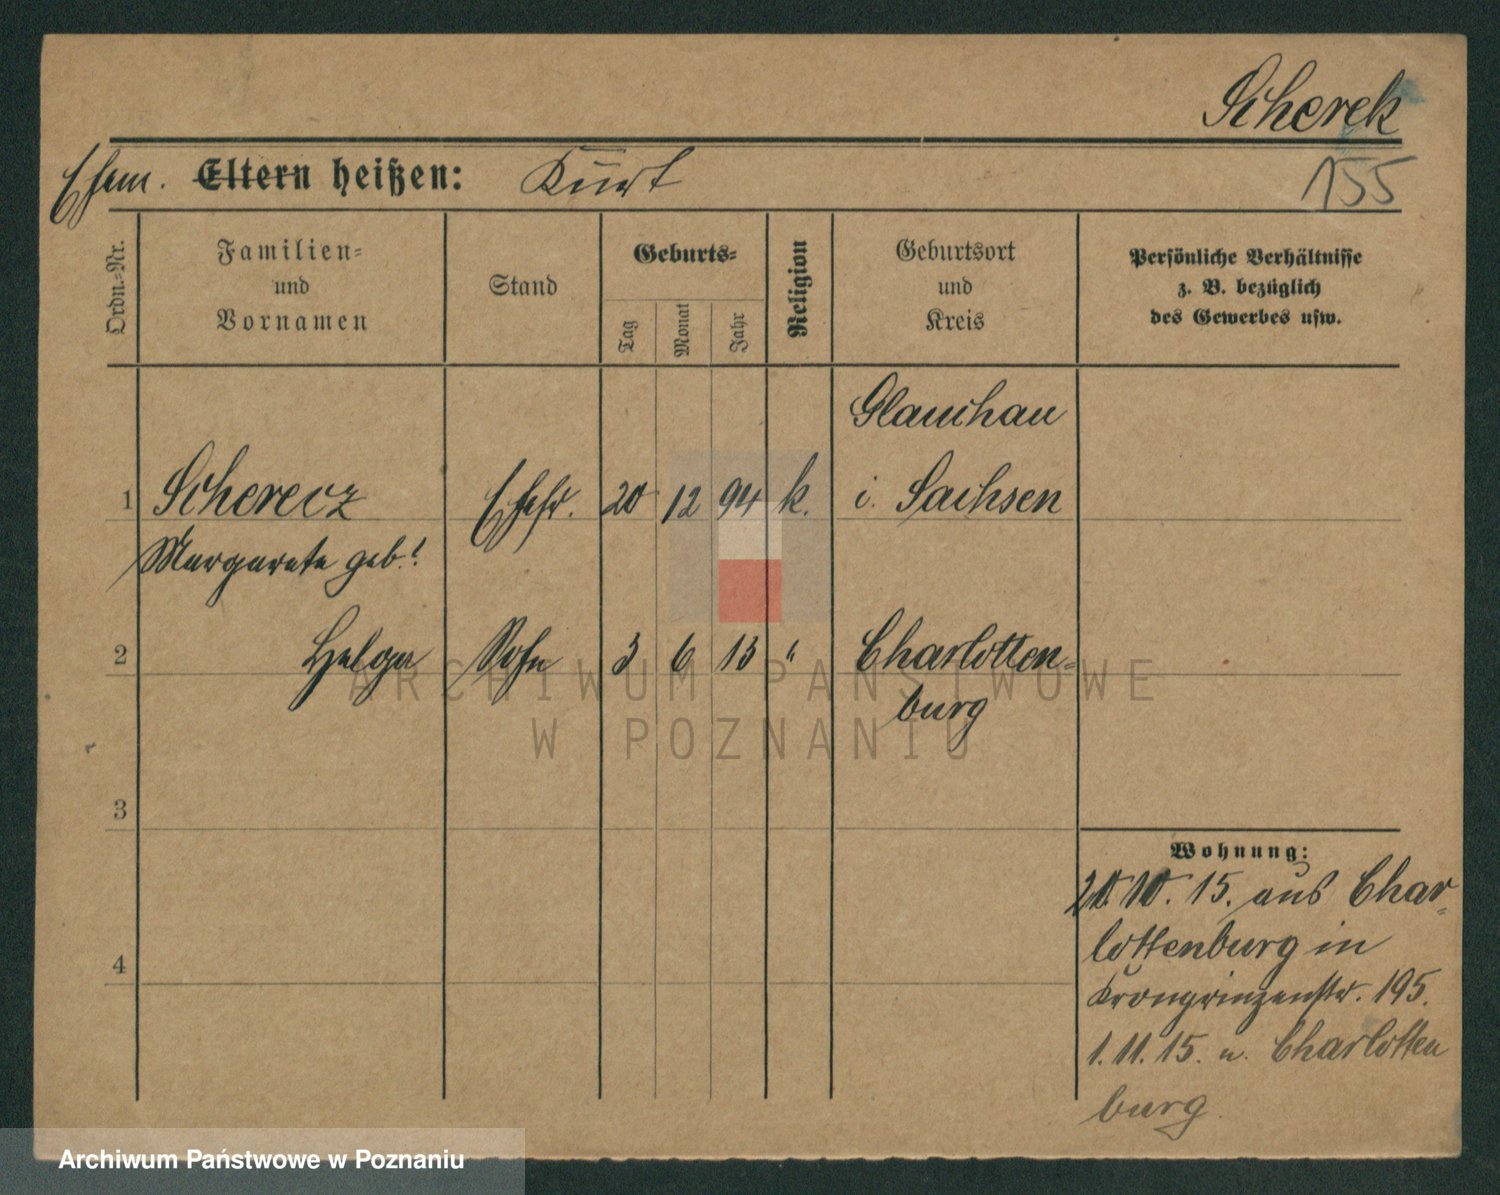 Scherek
Ehem. Eltern heißen: Kurt
155
Ordn.-Nr.
Familien-
und
Vornamen
Stand
Geburts-
Tag
Monat
Jahr
Religion
Geburtsort
und
Kreis
Persönliche Verhältnisse
z. B. bezüglich
des Gewerbes usw.
Glauchau
1 Scherecz Ehefr. 20 12 94 k. i. Sachsen
Margarete geb.
2 Helga 3 6 13 " Charlotten-
burg
3
4
Wohnung:
10. 15. aus Char-
lottenburg in
Kronprinzenstr. 195.
1. 11. 15. n. Charlotten
burg
ARCHIWUM PAŃSTWOWE
W POZNANIU
Archiwum Państwowe w Poznaniu